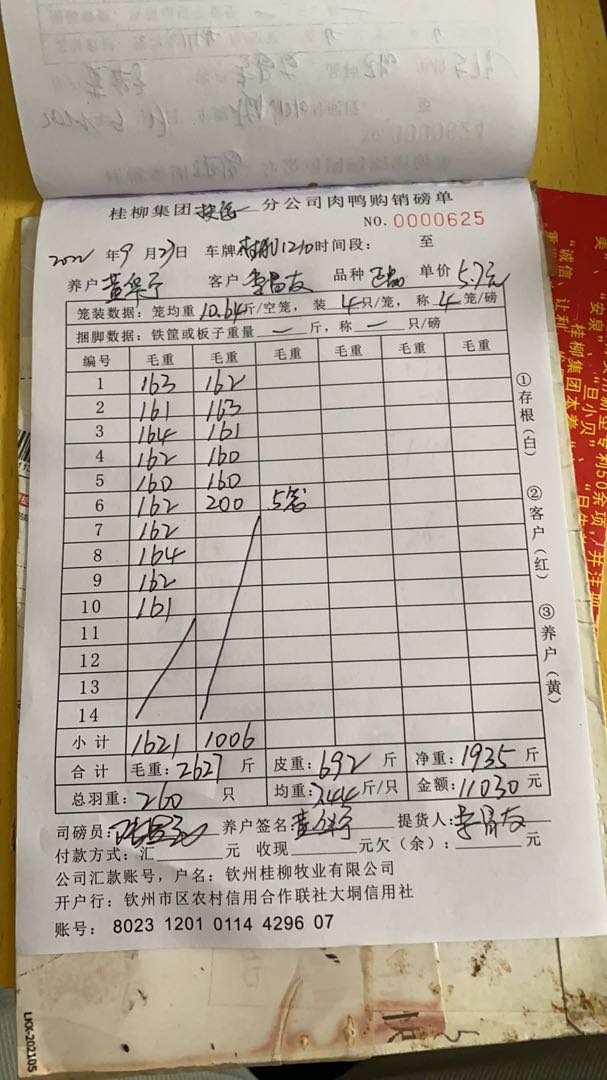 桂柳集团 扶伍一 分公司肉鸭购销磅单
NO. 0000625
2022 年 9 月 27 日 车牌 1210 时间段： 至
养户 客户 李昌友 品种 正品 单价 5.7元
笼装数据：笼均重 10.64 斤/空笼，装 4 只/笼，称 4 笼/磅
捆脚数据：铁筐或板子重量 一 斤，称 一 只/磅
编号 毛重 毛重 毛重 毛重 毛重 毛重
1 163 162
2 161 163
3 164 161
4 162 160
5 160 160
6 162 200 5笼
7 162
8 164
9 162
10 161
11
12
13
14
小计 1621 1006
合计 毛重：2627 斤 皮重：692 斤 净重：1935 斤
总羽重：260 只 均重：7.44 斤/只 金额：11030 元
司磅员： 养户签名： 提货人：李昌友
付款方式：汇 元 收现 元欠（余）： 元
公司汇款账号，户名：钦州桂柳牧业有限公司
开户行：钦州市区农村信用合作联社大垌信用社
账号： 8023 1201 0114 4296 07
①存根（白）
②客户（红）
③养户（黄）
LKX-202105